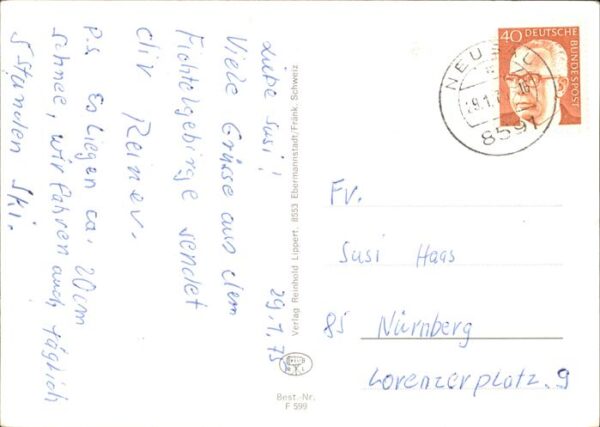 Liebe Susi! 29.1.75
Viele Grüsse aus dem
Fichtelgebirge sendet
dir Reiner.
P.s. Es liegen ca. 20cm
schnee, wir fahren auch täglich
5 Stunden Ski.
Verlag Reinhold Lippert, 8553 Ebermannstadt/Fränk. Schweiz
Best.-Nr.
F 599
40 DEUTSCHE
BUNDESPOST
NEUSAU
8591
Fr.
Susi Haas
85 Nürnberg
Lorenzerplatz. 9